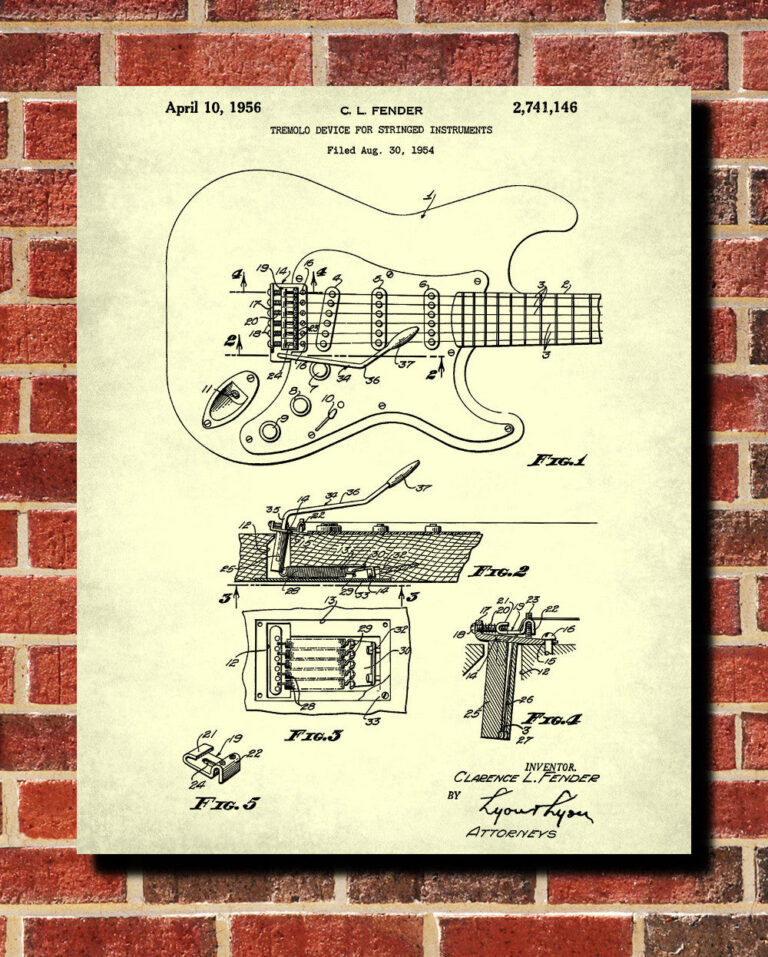 April 10, 1956 C. L. FENDER 2,741,146
TREMOLO DEVICE FOR STRINGED INSTRUMENTS
Filed Aug. 30, 1954
1
19 14 16
4 4
4 5 6 3 2
17
20 23
18
2
3
24 18 34 36 37 2
7
11 8 10
9
FIG.1
37
34 36
35 14 22
12 13 30 32
25 28 29 33 14
FIG.2
3 3
13
29 32
12 30
28 33
FIG.3
17 21 19 23
18 20 22 16
14 15
12
25 26
3
27
FIG.4
21 19 22
24
FIG.5
INVENTOR.
CLARENCE L. FENDER
BY Lyon & Lyon
ATTORNEYS